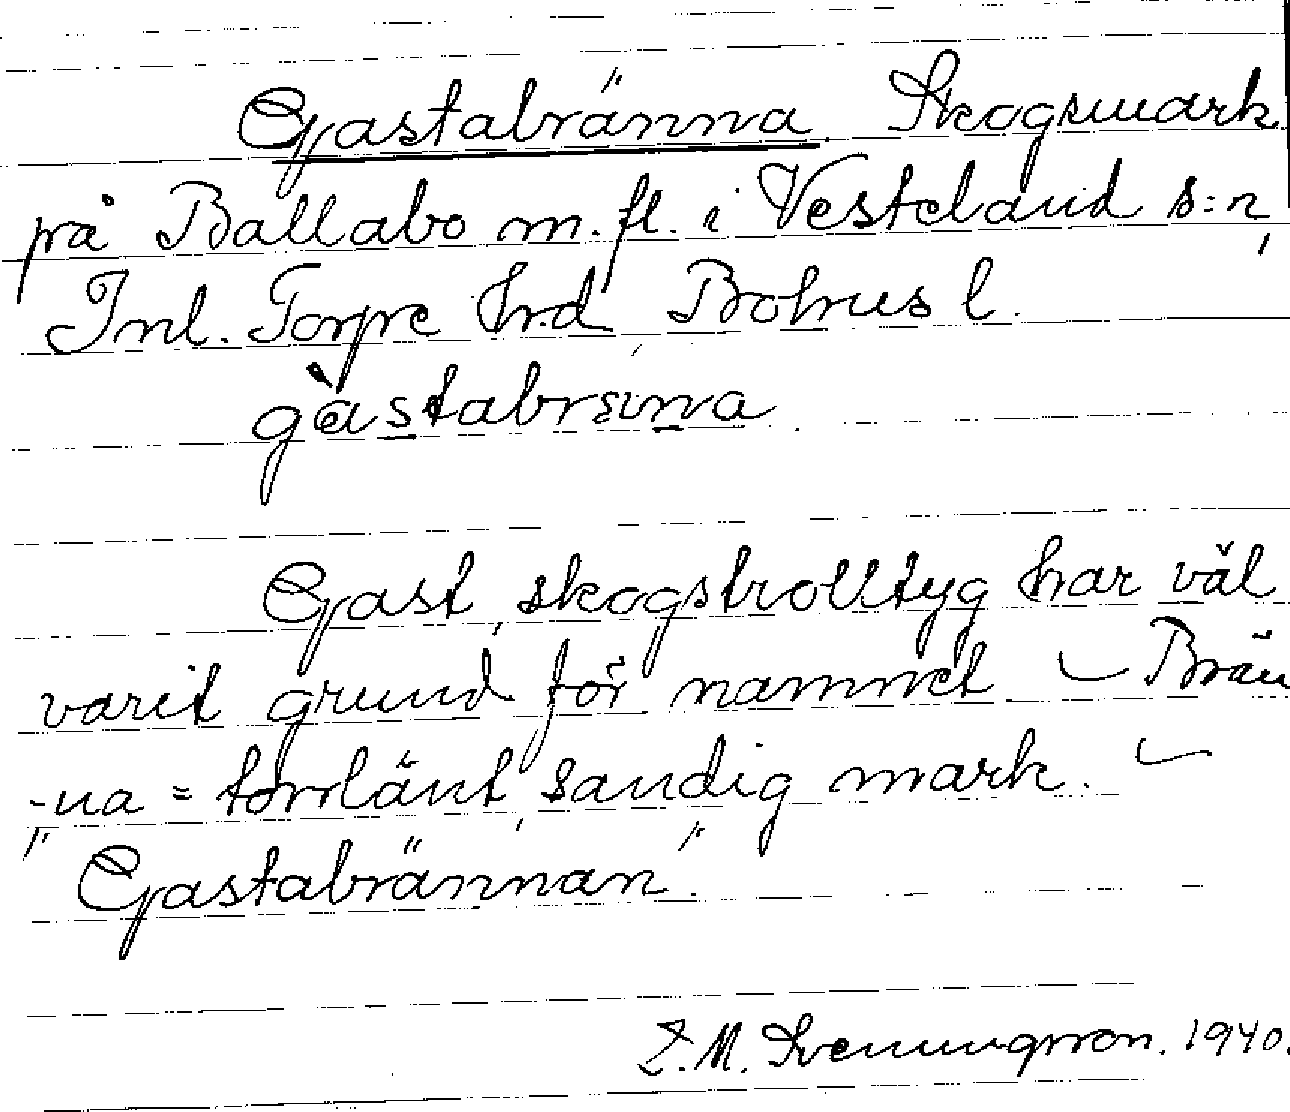 Gastabränna Skogsmark
på Ballabo m.fl. i Vesteland s:n,
Inl. Torpe hrd Bohusl.
gàstabrɛ́na
Gast, skogstrolltyg har väl
varit grund för namnet – Brän
-na = torrlänt, sandig mark. –
"Gastabrännan".
Z.M. Svenungsson. 1940.